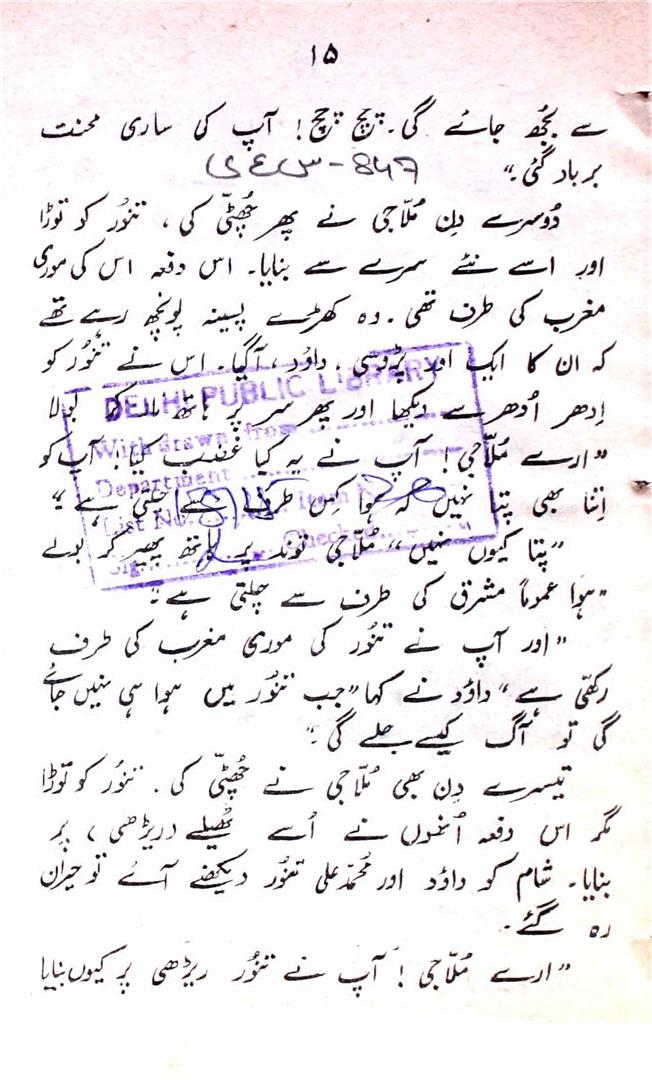 ۱۵
سے بُجھ جائے گی۔ چچ چچ! آپ کی ساری محنت
برباد گئی۔"
847-س ع ی
دُوسرے دِن مُلّا جی نے پھر چُھٹّی کی، تنُور کو توڑا
اور اسے نئے سرے سے بنایا۔ اس دفعہ اس کی موری
مغرب کی طرف تھی۔ وہ کھڑے پسینہ پونچھ رہے تھے
کہ ان کا ایک اور پڑوسی، داؤد، آگیا۔ اس نے تنُور کو
اِدھر اُدھر سے دیکھا اور پھر سر پر ہاتھ مار کر بولا
"ارے مُلّا جی! آپ نے یہ کیا غضب کیا! آپ کو
اِتنا بھی پتا نہیں کہ ہوا کِس طرف سے چلتی ہے"
"پتا کیوں نہیں" مُلّا جی توند پر ہاتھ پھیر کر بولے
"ہوا عموماً مشرق کی طرف سے چلتی ہے۔"
"اور آپ نے تنُور کی موری مغرب کی طرف
رکھّی ہے" داؤد نے کہا "جب تنُور میں ہوا ہی نہیں جائے
گی تو آگ کیسے جلے گی۔"
تیسرے دِن بھی مُلّا جی نے چُھٹّی کی۔ تنُور کو توڑا
مگر اس دفعہ اُنھوں نے اُسے ٹھیلے (ریڑھی) پر
بنایا۔ شام کو داؤد اور مُحمّد علی تنُور دیکھنے آئے تو حیران
رہ گئے۔
"ارے مُلّا جی! آپ نے تنُور ریڑھی پر کیوں بنایا
DELHI PUBLIC LIBRARY
Withdrawn from
Department
List No. Item No.
Sig. Checked